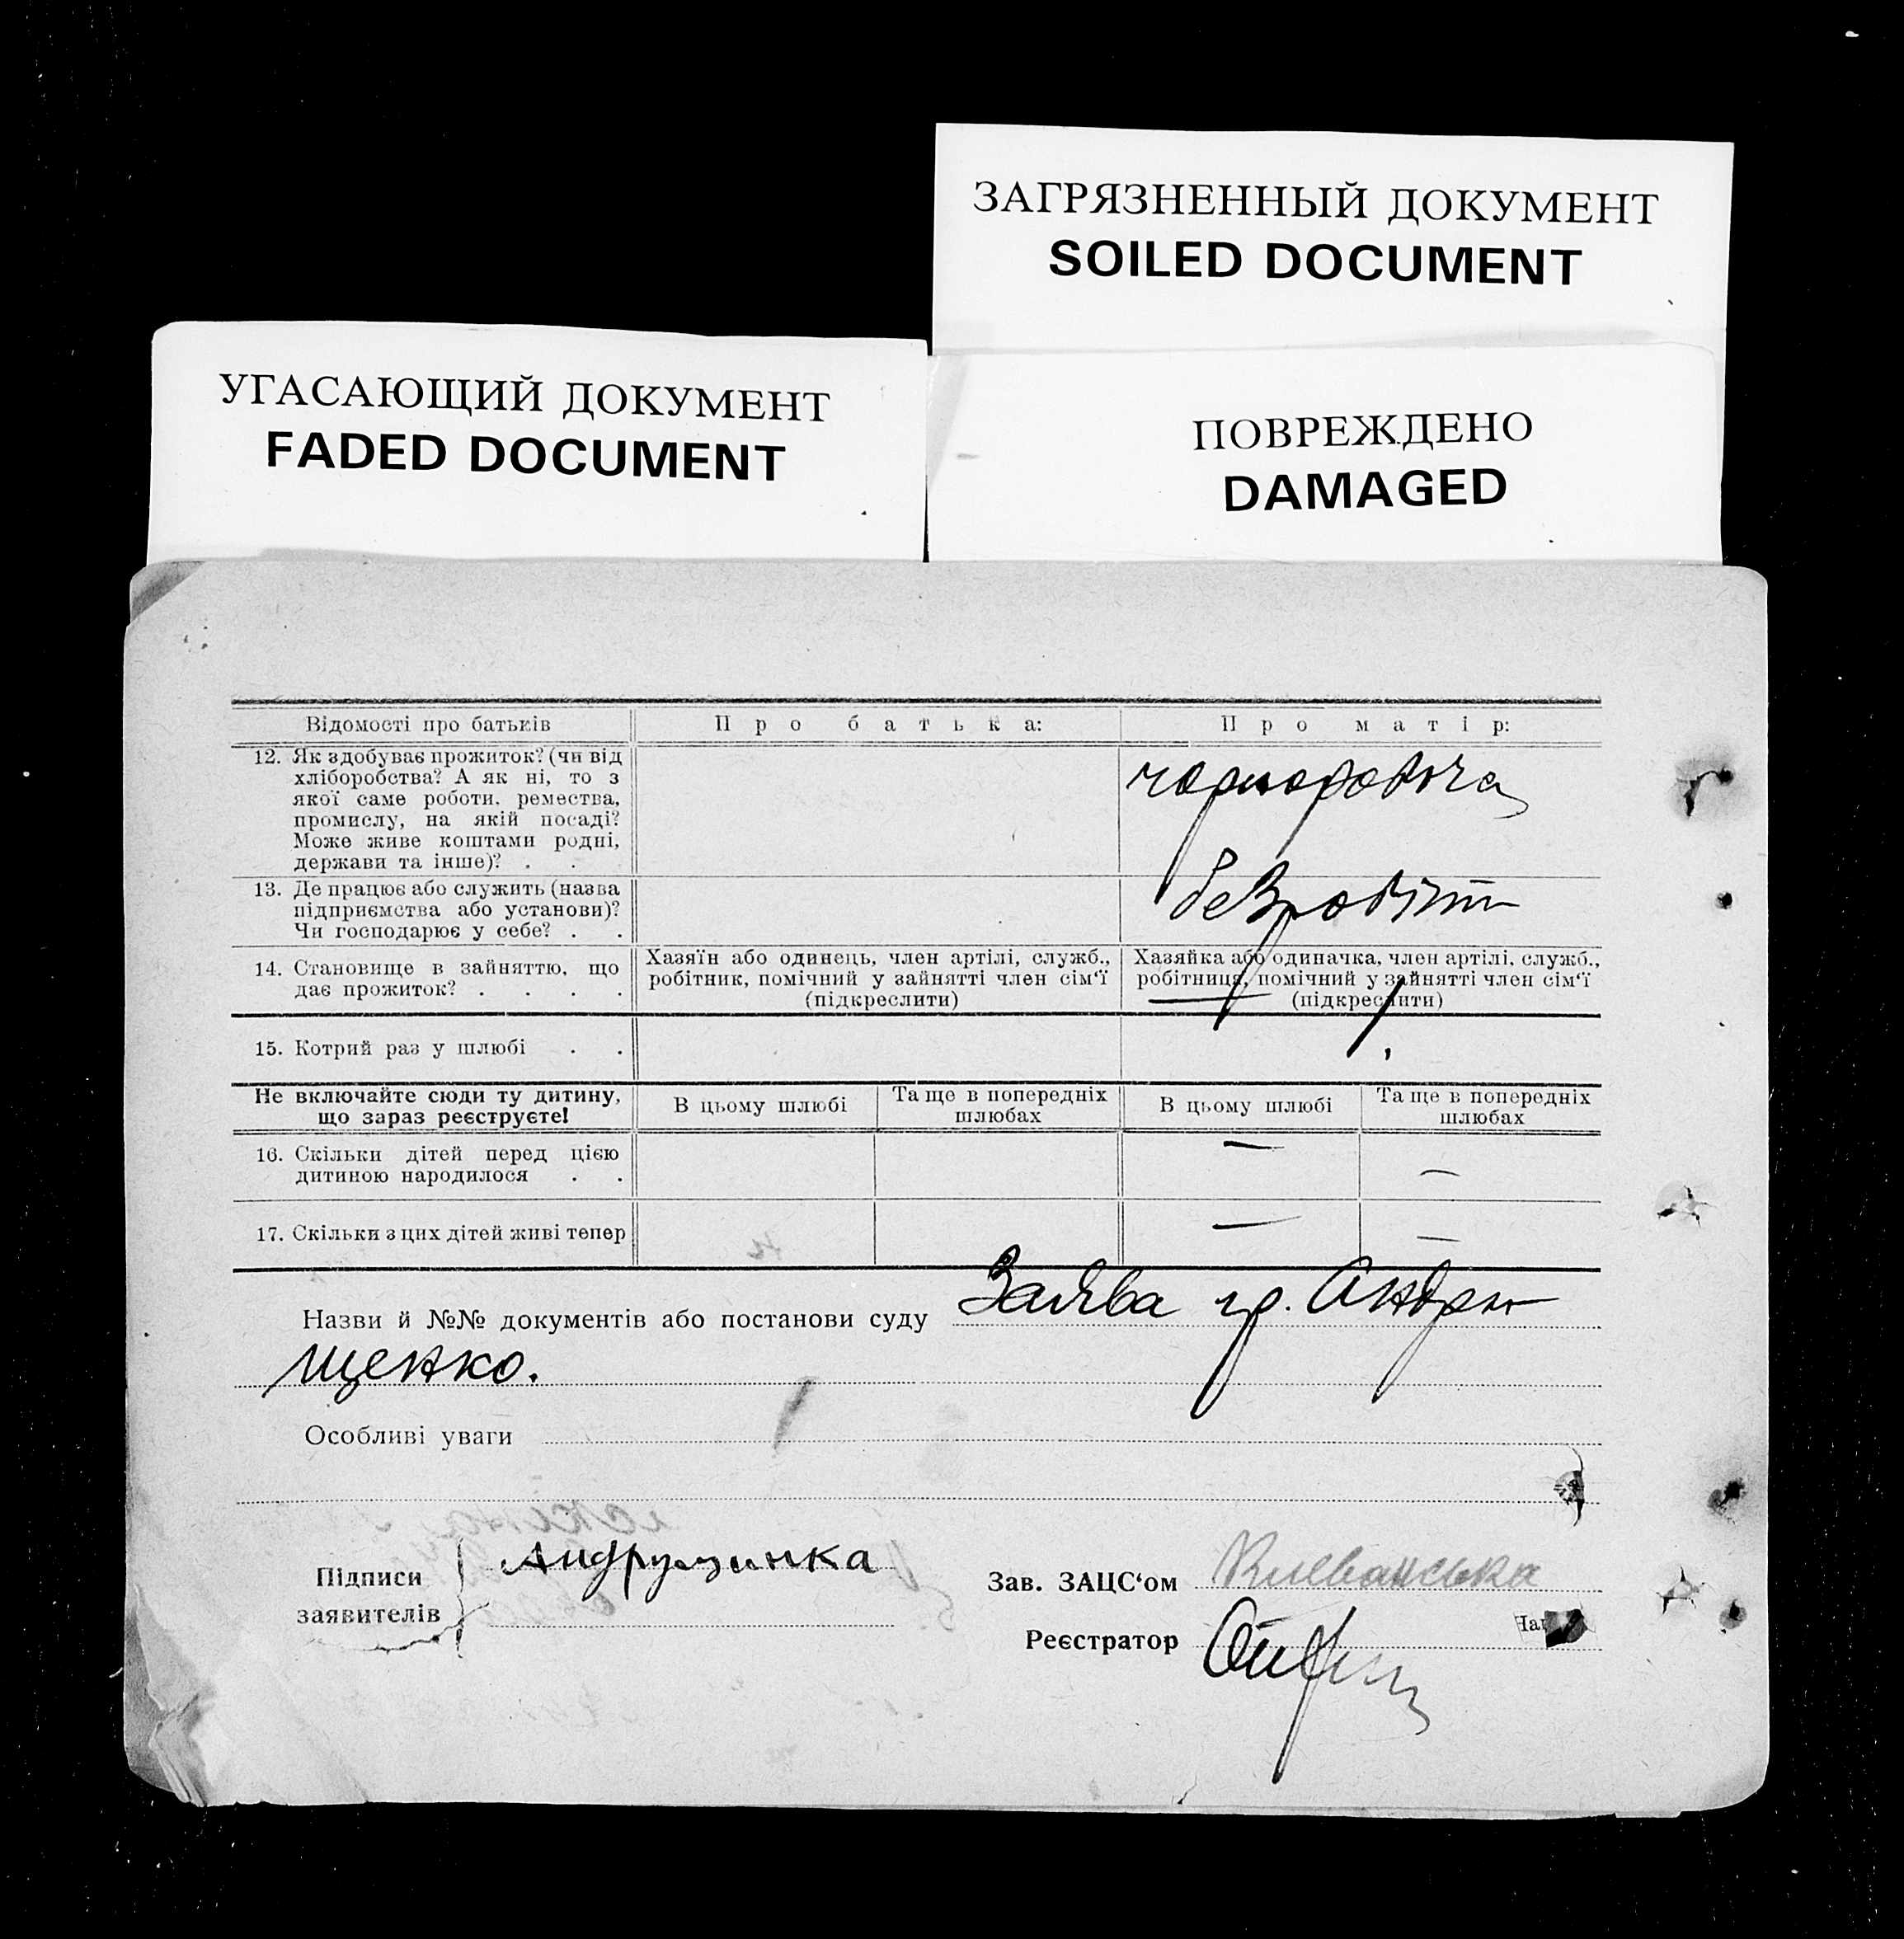 ЗАГРЯЗНЕННЫЙ ДОКУМЕНТ
SOILED DOCUMENT
УГАСАЮЩИЙ ДОКУМЕНТ
FADED DOCUMENT
ПОВРЕЖДЕНО
DAMAGED
Відомості про батьків
Про батька:
Про матір:
12. Як здобуває прожиток? (чи від
хліборобства? А як ні, то з
якої саме роботи, ремества,
промислу, на якій посаді?
Може живе коштами родні,
держави та інше)? . .
чорноробоча
13. Де працює або служить (назва
підприємства або установи)?
Чи господарює у себе? . .
безробітн
14. Становище в зайняттю, що
дає прожиток? . . . .
Хазяїн або одинець, член артілі, служб.,
робітник, помічний у зайнятті член сім'ї
(підкреслити)
Хазяйка або одиначка, член артілі, служб.,
робітниця, помічний у зайнятті член сім'ї
(підкреслити)
15. Котрий раз у шлюбі . .
Не включайте сюди ту дитину,
що зараз реєструєте!
В цьому шлюбі
Та ще в попередніх
шлюбах
В цьому шлюбі
Та ще в попередніх
шлюбах
16. Скільки дітей перед цією
дитиною народилося . .
—
—
17. Скільки з цих дітей живі тепер
—
—
Назви й №№ документів або постанови суду Заява гр. Андрю
щенко.
Особливі уваги
Підписи
заявителів
Андрущинка
Зав. ЗАЦС'ом
Реєстратор